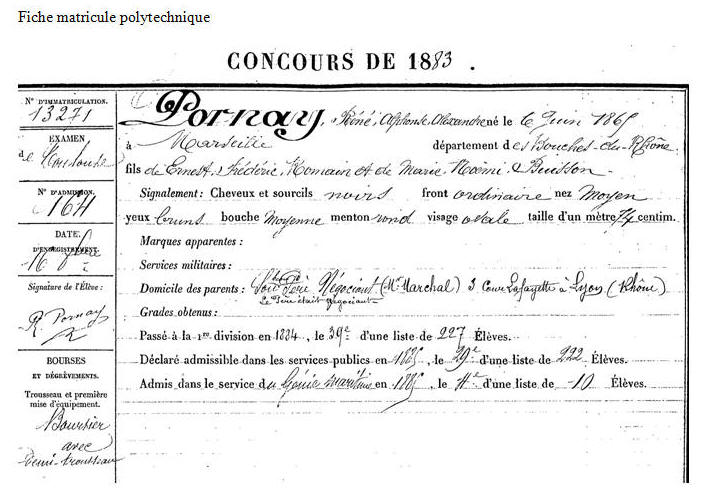 Fiche matricule polytechnique
CONCOURS DE 1883.
N° D'IMMATRICULATION.
13271
EXAMEN
de Toulouse
N° D'ADMISSION.
164
DATE
D'ENREGISTREMENT.
16 9bre
Signature de l'Élève :
R. Pornay
BOURSES
ET DÉGRÈVEMENTS.
Trousseau et première
mise d'équipement.
Boursier
avec
demi-trousseau
Pornay, Réné, Alphonse, Alexandre né le 6 Juin 1865
à Marseille département des Bouches-du-Rhône
fils de Ernest, Frédéric, Romain et de Marie, Noémi, Buisson
Signalement : Cheveux et sourcils noirs front ordinaire nez Moyen
yeux bruns bouche Moyenne menton rond visage ovale taille d'un mètre 74 centim.
Marques apparentes :
Services militaires :
Domicile des parents : Père Négociant (Mr Marchal) 3 Cour Lafayette à Lyon (Rhône)
Le Père était négociant
Grades obtenus :
Passé à la 1re division en 1884, le 39e d'une liste de 227 Élèves.
Déclaré admissible dans les services publics en 1885, le 29e d'une liste de 222 Élèves.
Admis dans le service du Génie maritime en 1885, le 4e d'une liste de 10 Élèves.